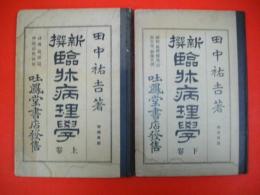 田中祐吉著
新撰
臨牀病理學
上卷
吐鳳堂書店發售
田中祐吉著
新撰
臨牀病理學
下卷
吐鳳堂書店發售